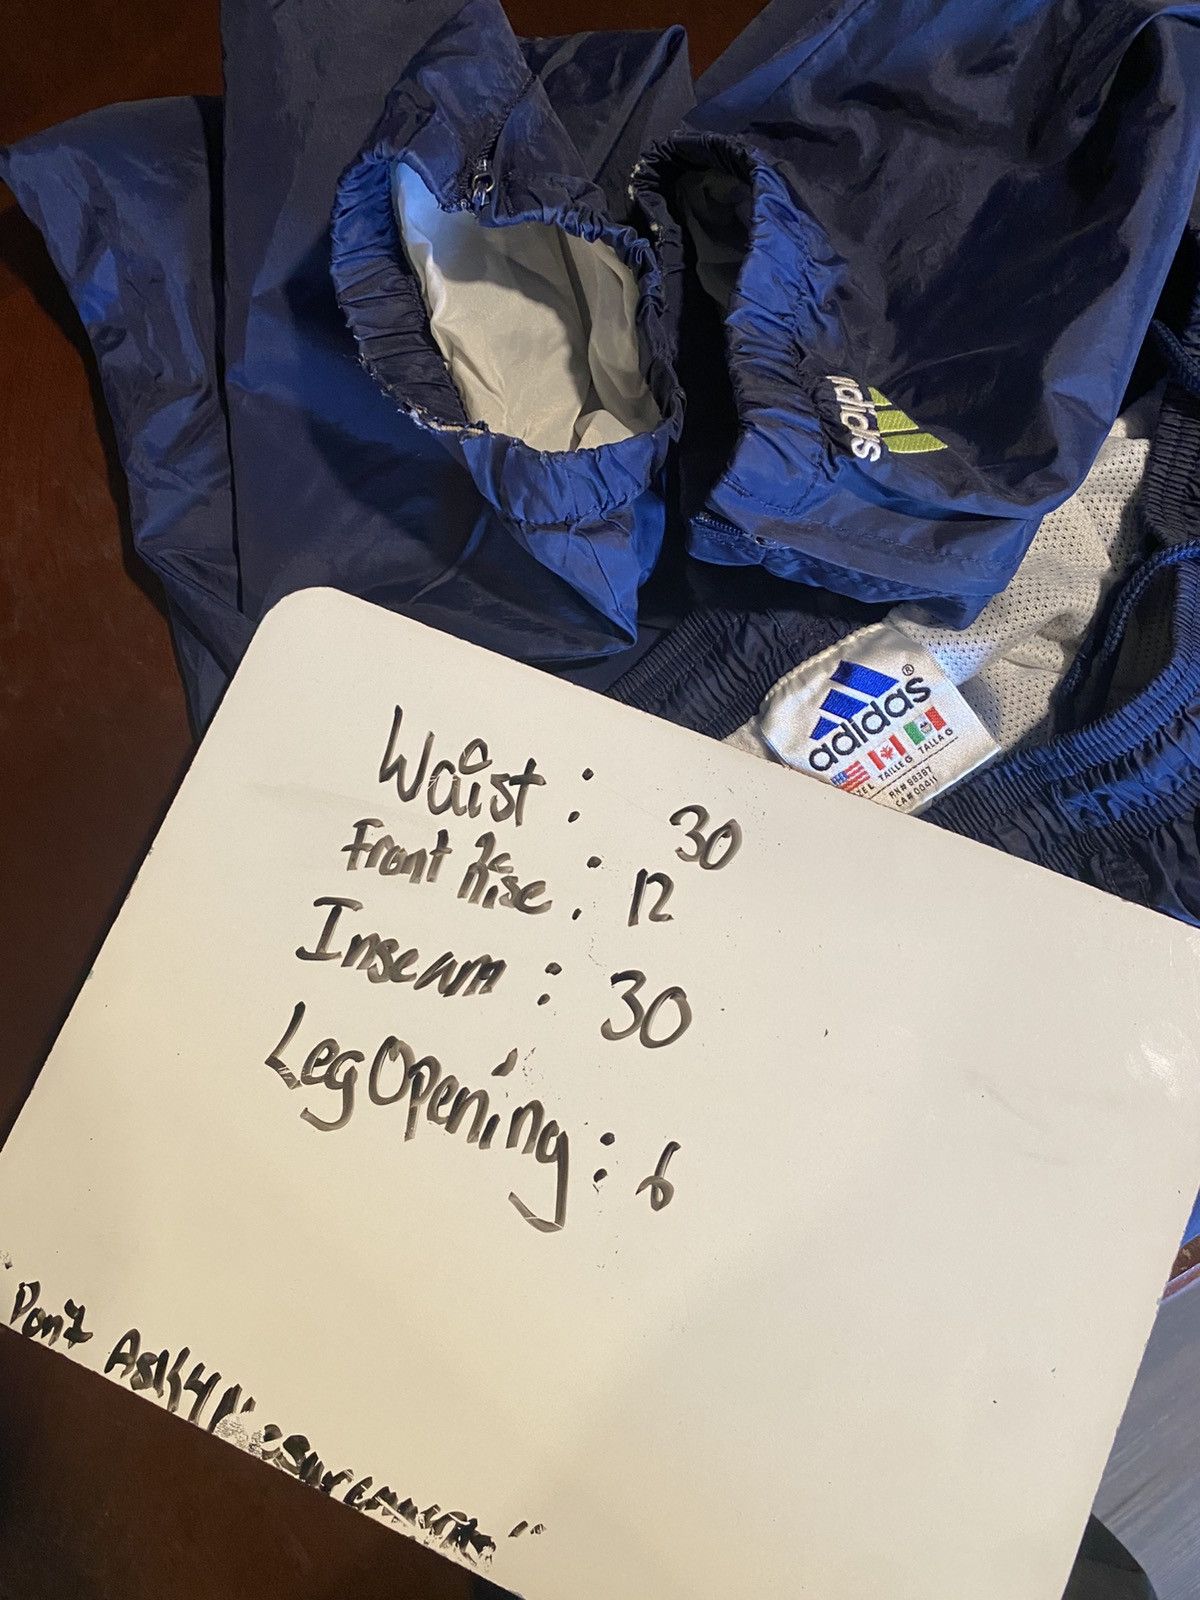 adidas
adidas®
ZE L TAILLE G TALLA G
RN# 88387
CA# 00411
Waist : 30
Front Rise : 12
Inseam : 30
Leg Opening : 6
"Don't Ask 4 Mesurements"